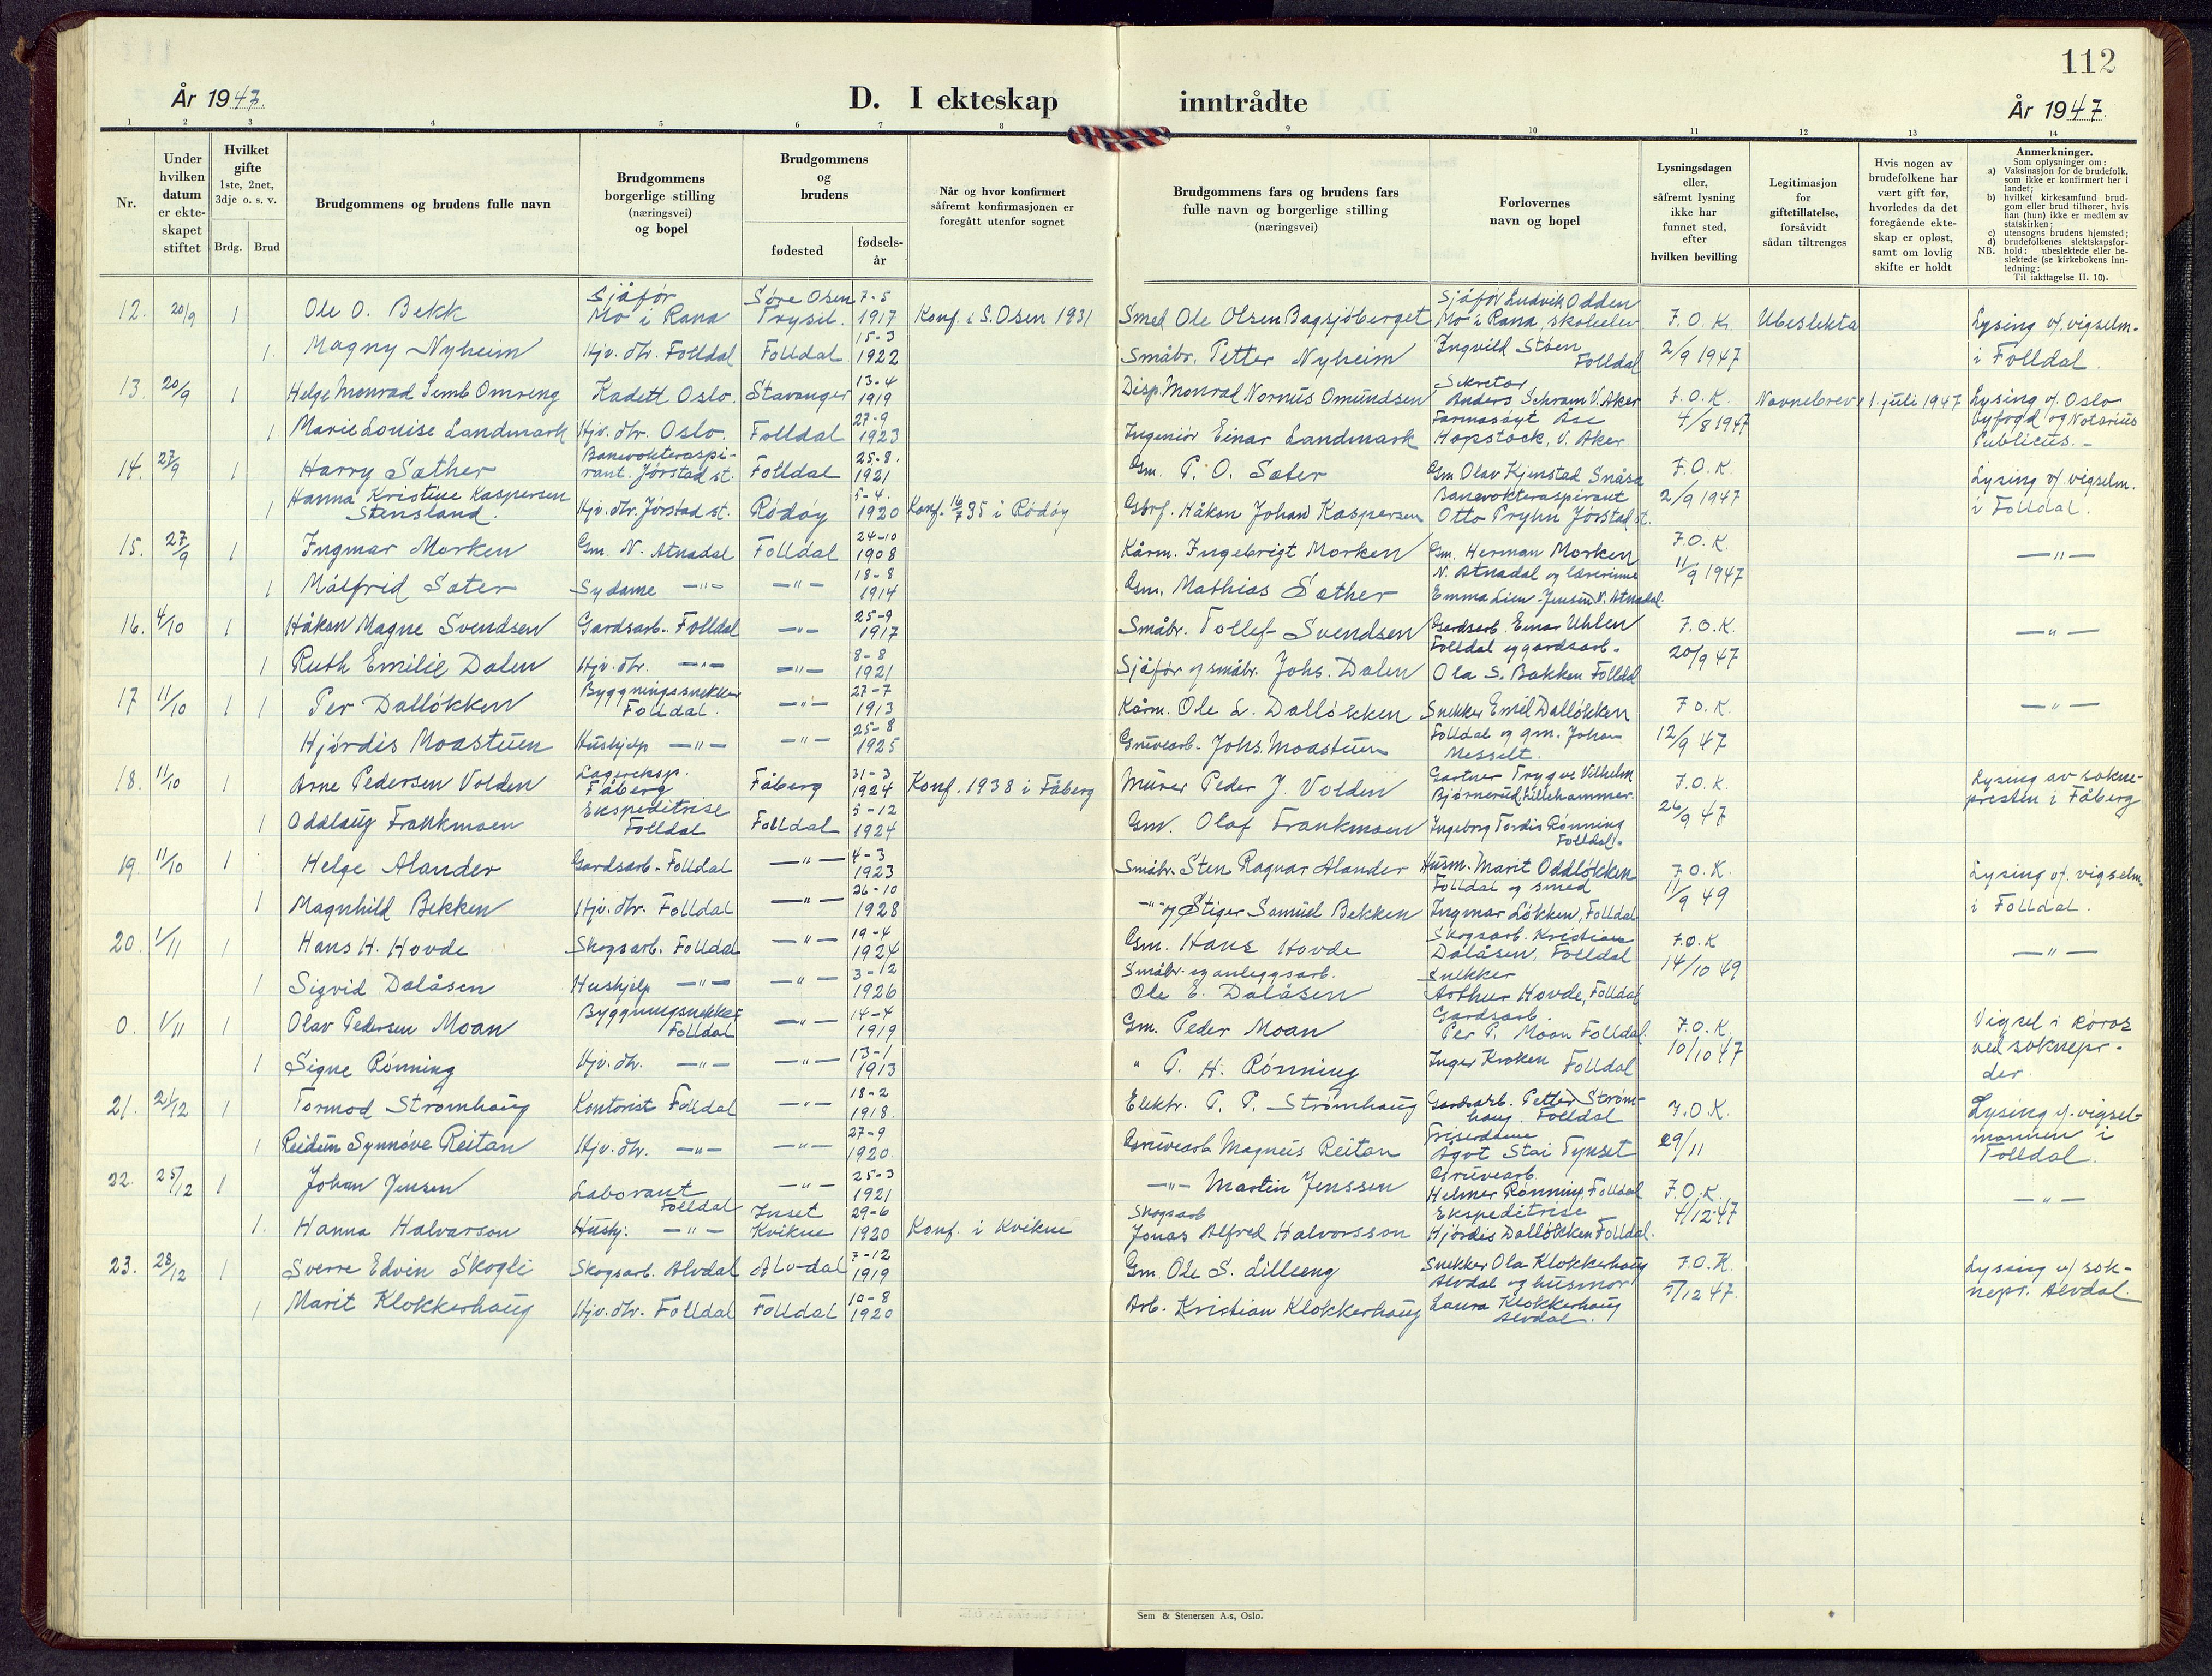 112
År 1947.
D. I ekteskap inntrådte
År 1947.
1 2 3 4 5 6 7 8 9 10 11 12 13 14
Nr.
Under hvilken datum er ekte-skapet stiftet
Hvilket gifte 1ste, 2net, 3dje o. s. v.
Brdg. Brud
Brudgommens og brudens fulle navn
Brudgommens borgerlige stilling (næringsvei) og bopel
Brudgommens og brudens
fødested
fødsels-år
Når og hvor konfirmert såfremt konfirmasjonen er foregått utenfor sognet
Brudgommens fars og brudens fars fulle navn og borgerlige stilling (næringsvei)
Forlovernes navn og bopel
Lysningsdagen eller, såfremt lysning ikke har funnet sted, efter hvilken bevilling
Legitimasjon for giftetillatelse, forsåvidt sådan tiltrenges
Hvis nogen av brudefolkene har vært gift før, hvorledes da det foregående ekte-skap er opløst, samt om lovlig skifte er holdt
Anmerkninger.
Som oplysninger om:
a) Vaksinasjon for de brudefolk, som ikke er konfirmert her i landet;
b) hvilket kirkesamfund brud-gom eller brud tilhører, hvis han (hun) ikke er medlem av statskirken;
c) utensogns brudens hjemsted;
d) brudefolkenes slektskapsfor-hold: ubeslektede eller be-slektede (se kirkebokens inn-ledning:
NB. Til iakttagelse II. 10).
12. 20/9 1 Ole O. Bekk Sjåfør Mo i Rana Søre Osen Trysil. 7-5 1917 Konf. i S. Osen 1931 Smed Ole Olsen Bagsjöberget Sjåfør Ludvik Odden Mo i Rana, skoleelev F.O.K. Ubeslekta Lysing v/. vigselm.
1. Magny Nyheim Hjv. dtr. Folldal Folldal 15-3 1922 Småbr. Petter Nyheim Ingvild Støen Folldal 2/9 1947 i Folldal.
13. 20/9 1 Helge Monrad Semb Omreng Kadett Oslo. Stavanger 13-4 1919 Disp. Monrad Nornus Omundsen Sekretær Anders Schram V. Aker F.O.K. Navnebrev 1. juli 1947 Lysing v/. Oslo
1 Marie Louise Landmark Hjv. dtr. Oslo. Folldal 27-9 1923 Ingeniør Einar Landmark Farmasøyt Åse Hopstock, V. Aker 4/8 1947 byfogd og Notarius Publicus.-
14. 27/9 1 Harry Sæther Banevokteraspi-rant. Jørstad st. Folldal 25-8. 1921 Gm. P. O. Sæter Gm Olav Kjenstad Snåsa F.O.K. Lysing v/. vigselm.
1 Hanna Kristine Kaspersen Stensland. Hjv. dtr. Jørstad st. Rødøy 5-4. 1920 Konf. 16/7 35 i Rødøy Gbrf. Håkon Johan Kaspersen Banevokteraspirant Otto Pryhn Jørstad st. 2/9 1947 i Folldal.
15. 27/9 1 Ingmar Morken Gm. N. Atnadal Folldal 24-10 1908 Kårm. Ingebrigt Morken Gm. Herman Morken F.O.K. —"—
1 Målfrid Sæter Sydame —"— —"— 18-8 1914 Gm. Mathias Sæther N. Atnadal og lærerinne Emma Lien-Jensen N. Atnadal. 11/9 1947
16. 4/10 1 Håkon Magne Svendsen Gardsarb. Folldal —"— 25-9 1917 Småbr. Tollef Svendsen Gardsarb. Einar Uhlen F.O.K. —"—
1 Ruth Emilie Dalen Hjv. dtr. —"— —"— 8-8 1921 Sjåfør og småbr. Johs. Dalen Folldal og gardsarb. Ola S. Bakken Folldal 20/9 47
17 11/10 1 1 Per Dalløkken Byggningssnekker Folldal. —"— 27-7 1913 Kårm. Ole L. Dalløkken Snekker Emil Dalløkken F.O.K. —"—
Hjørdis Moastuen Hushjelp —"— —"— 25-8 1925 Gruvearb. Johs. Moastuen Folldal og gm. Johan Messelt. 12/9 47
18. 11/10 1 Arne Pedersen Volden Lagereksp. Fåberg Fåberg 31-3 1924 Konf. 1938 i Fåberg Murer Peder J. Volden Gartner Trygve Vilhelm Bjørnerud, Lillehammer. F.O.K. Lysing av sokne-
1 Oddlaug Frankmoen Ekspeditrise Folldal Folldal 5-12 1924 Gm. Olaf Frankmoen Ingeborg Tordis Rønning Folldal. 26/9 47 presten i Fåberg
19. 11/10 1 Helge Alander Gardsarb. Folldal —"— 4-3 1923 Småbr. Sten Ragnar Alander Husm. Marit Oddløkken F.O.K. Lysing v/. vigselm.
1 Magnhild Bekken Hjv. dtr. Folldal —"— 26-10 1928 —"— og Stiger Samuel Bekken Folldal og smed Ingmar Løkken, Folldal 11/9 49 i Folldal.
20. 1/11 1 Hans H. Hovde Skogsarb. Folldal —"— 19-4 1924 Gm. Hans Hovde Skogsarb. Kristian Dalåsen, Folldal F.O.K —"—
1 Sigrid Dalåsen Hushjelp —"— —"— 3-12 1926 Småbr. og anleggsarb. Ole E. Dalåsen Snekker Arthur Hovde, Folldal 14/10 49
0. 1/11 1 Olav Pedersen Moan Byggningssnekker Folldal —"— 14-4 1919 Gm. Peder Moan Gardsarb. Per P. Moan Folldal. F.O.K. Vigsel i Røros
1 Signe Rønning Hjv. dtr. —"— —"— 13-1 1913 " P. H. Rønning Inger Kroken Folldal 10/10 47 ved soknepr. der.
21. 21/12 1 Tormod Strømhaug Kontorist Folldal —"— 18-2 1918. Elektr. P. P. Strømhaug Gardsarb. Petter Strøm-haug. Folldal F.O.K. Lysing v/. vigsel-
1 Reidun Synnøve Reitan Hjv. dtr. —"— —"— 27-9 1920. Gruvearb. Magnus Reitan Frisørdame Ågot Stai Tynset 29/11 mannen i Folldal.
22. 25/12 1 Johan Jensen Laborant Folldal —"— 25-3 1921 —"— Martin Jenssen Gruvearb. Helmer Rønning, Folldal F.O.K. —"—
1. Hanna Halvarson Hushj. —"— Inset Kvikne 29-6 1920 Konf. i Kvikne Skogsarb Jonas Alfred Halvorsson Ekspeditrise Hjørdis Dalløkken Folldal. 4/12-47
23. 28/12 1 Sverre Edvin Skogli Skogsarb. Alvdal Alvdal 7-12 1919 Gm. Ole S. Lilleeng Snekker Ola Klokkerhaug F.O.K. Lysing v/ sok-
1 Marit Klokkerhaug Hjv. dtr. Folldal Folldal 10-8 1920 Arb. Kristian Klokkerhaug Alvdal og husmor Laura Klokkerhaug Alvdal. 5/12 47. nepr. Alvdal.
Sem & Stenersen A.s, Oslo.